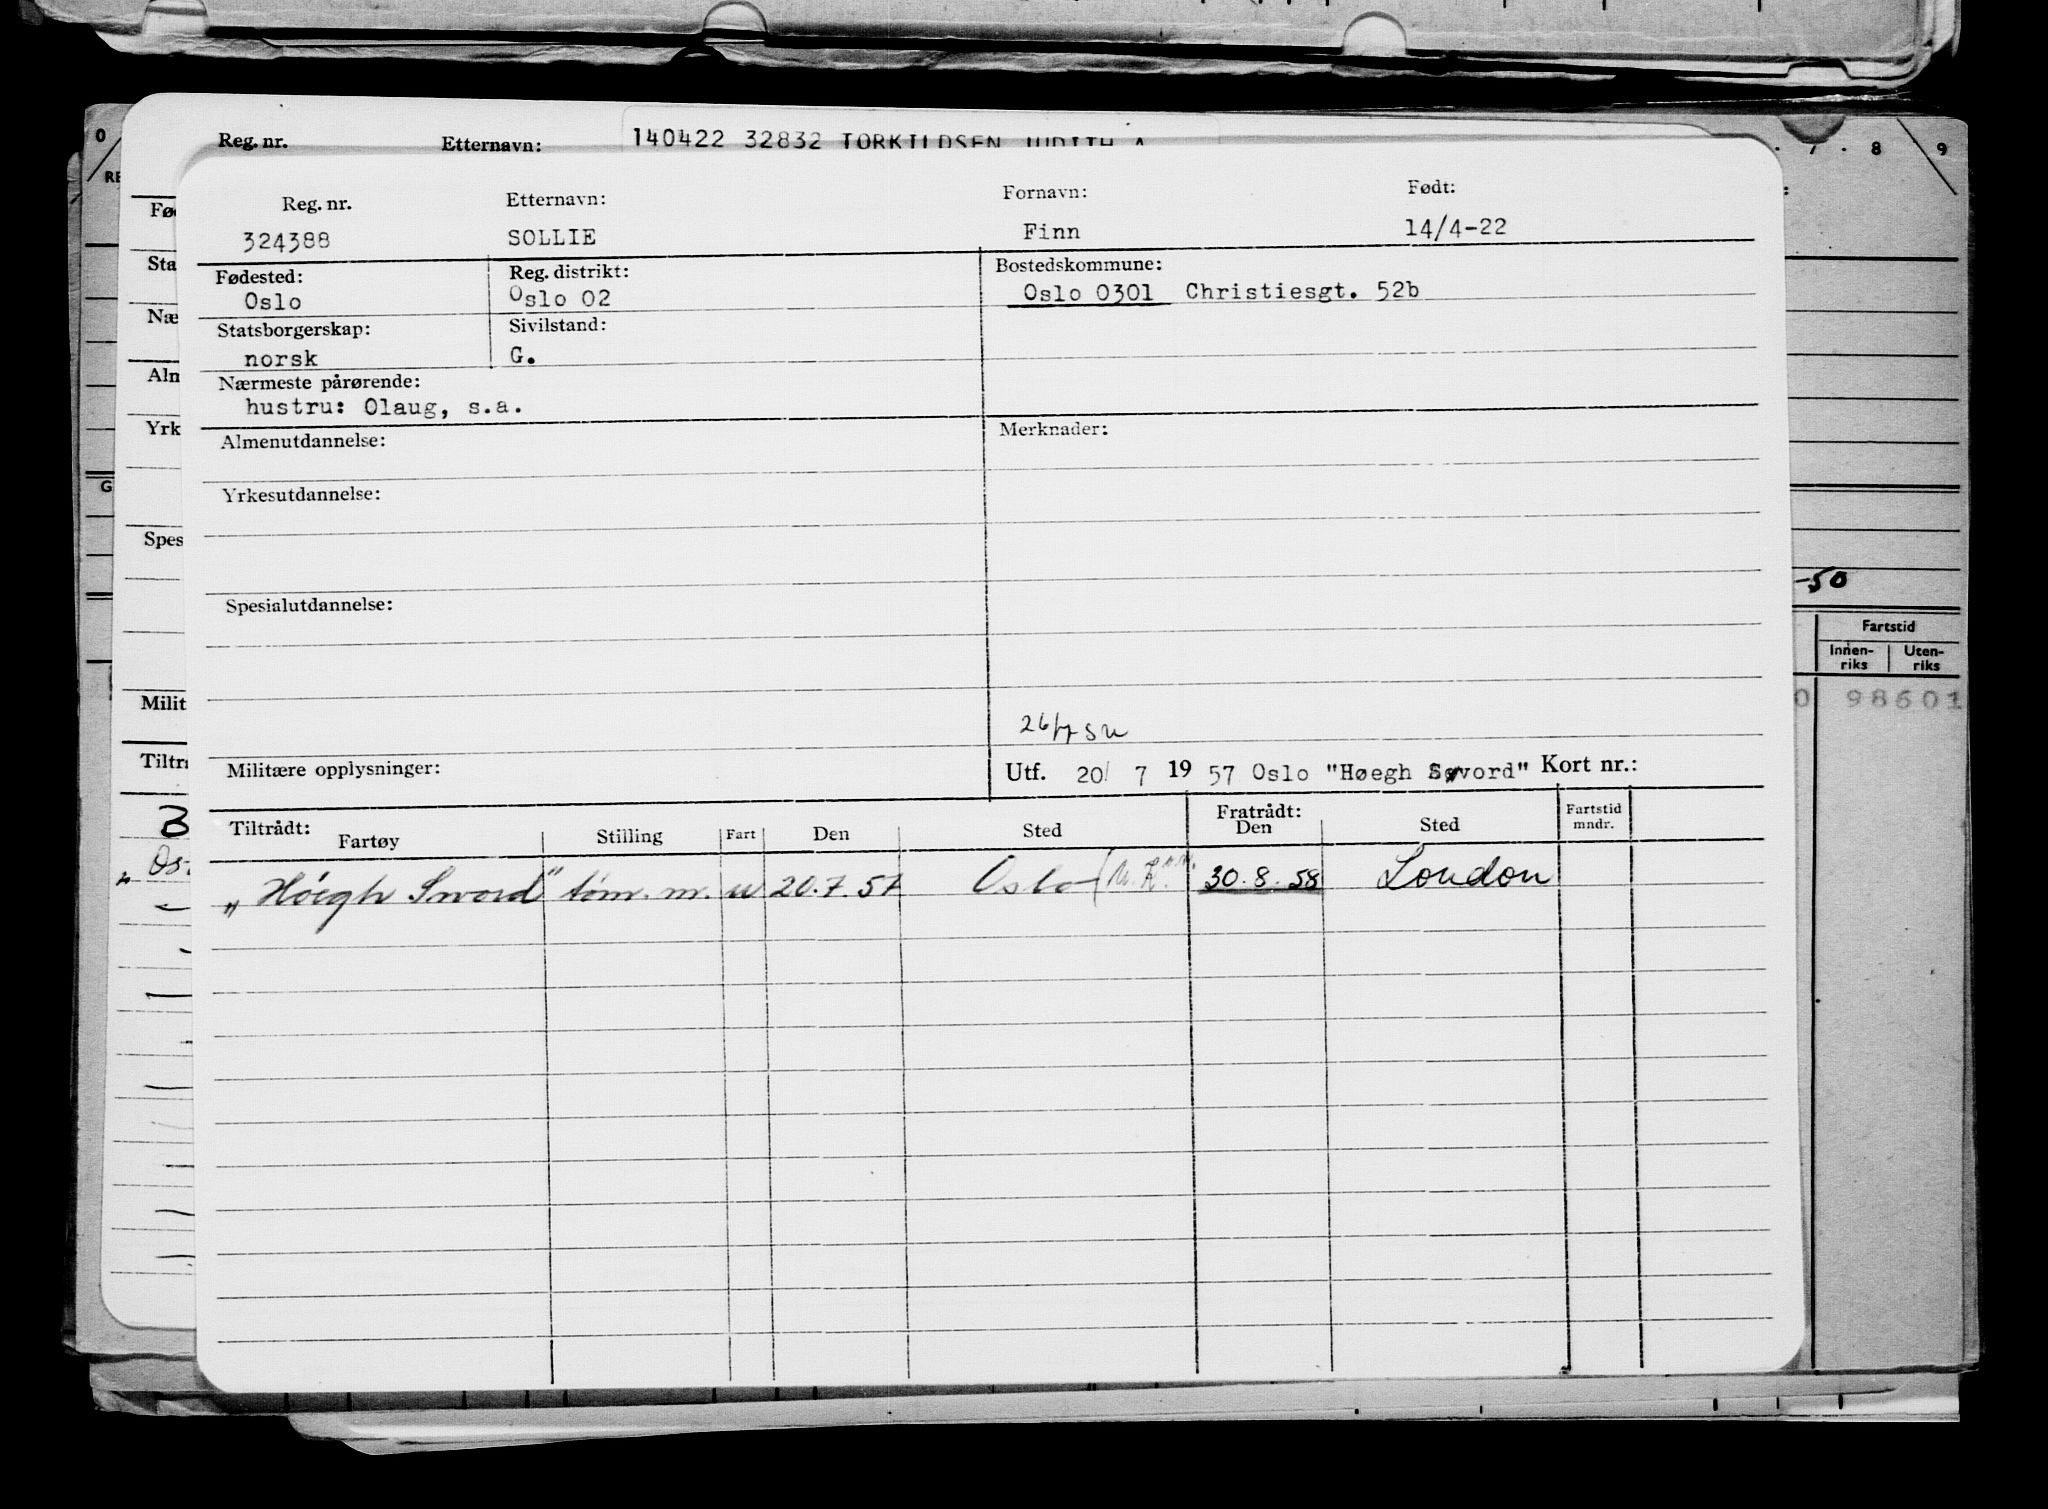 Reg. nr. Etternavn: 140422 32832 TORKILDSEN JUDITH A
0 7 . 8 9
Reg. nr. Etternavn: Fornavn: Født:
324388 SOLLIE Finn 14/4-22
Fødested: Reg. distrikt: Bostedskommune:
Oslo Oslo 02 Oslo 0301 Christiesgt. 52b
Statsborgerskap: Sivilstand:
norsk G.
Nærmeste pårørende:
hustru: Olaug, s.a.
Almenutdannelse: Merknader:
Yrkesutdannelse:
Spesialutdannelse:
26/7 su
Militære opplysninger: Utf. 20/ 7 19 57 Oslo "Høegh Sword" Kort nr.:
Tiltrådt: Fratrådt:
Fartøy Stilling Fart Den Sted Den Sted Fartstid mndr.
"Höegh Sword" töm. m. u 20.7.57 Oslo 30.8.58 London
-50
Fartstid
Innen-riks Uten-riks
0 98601